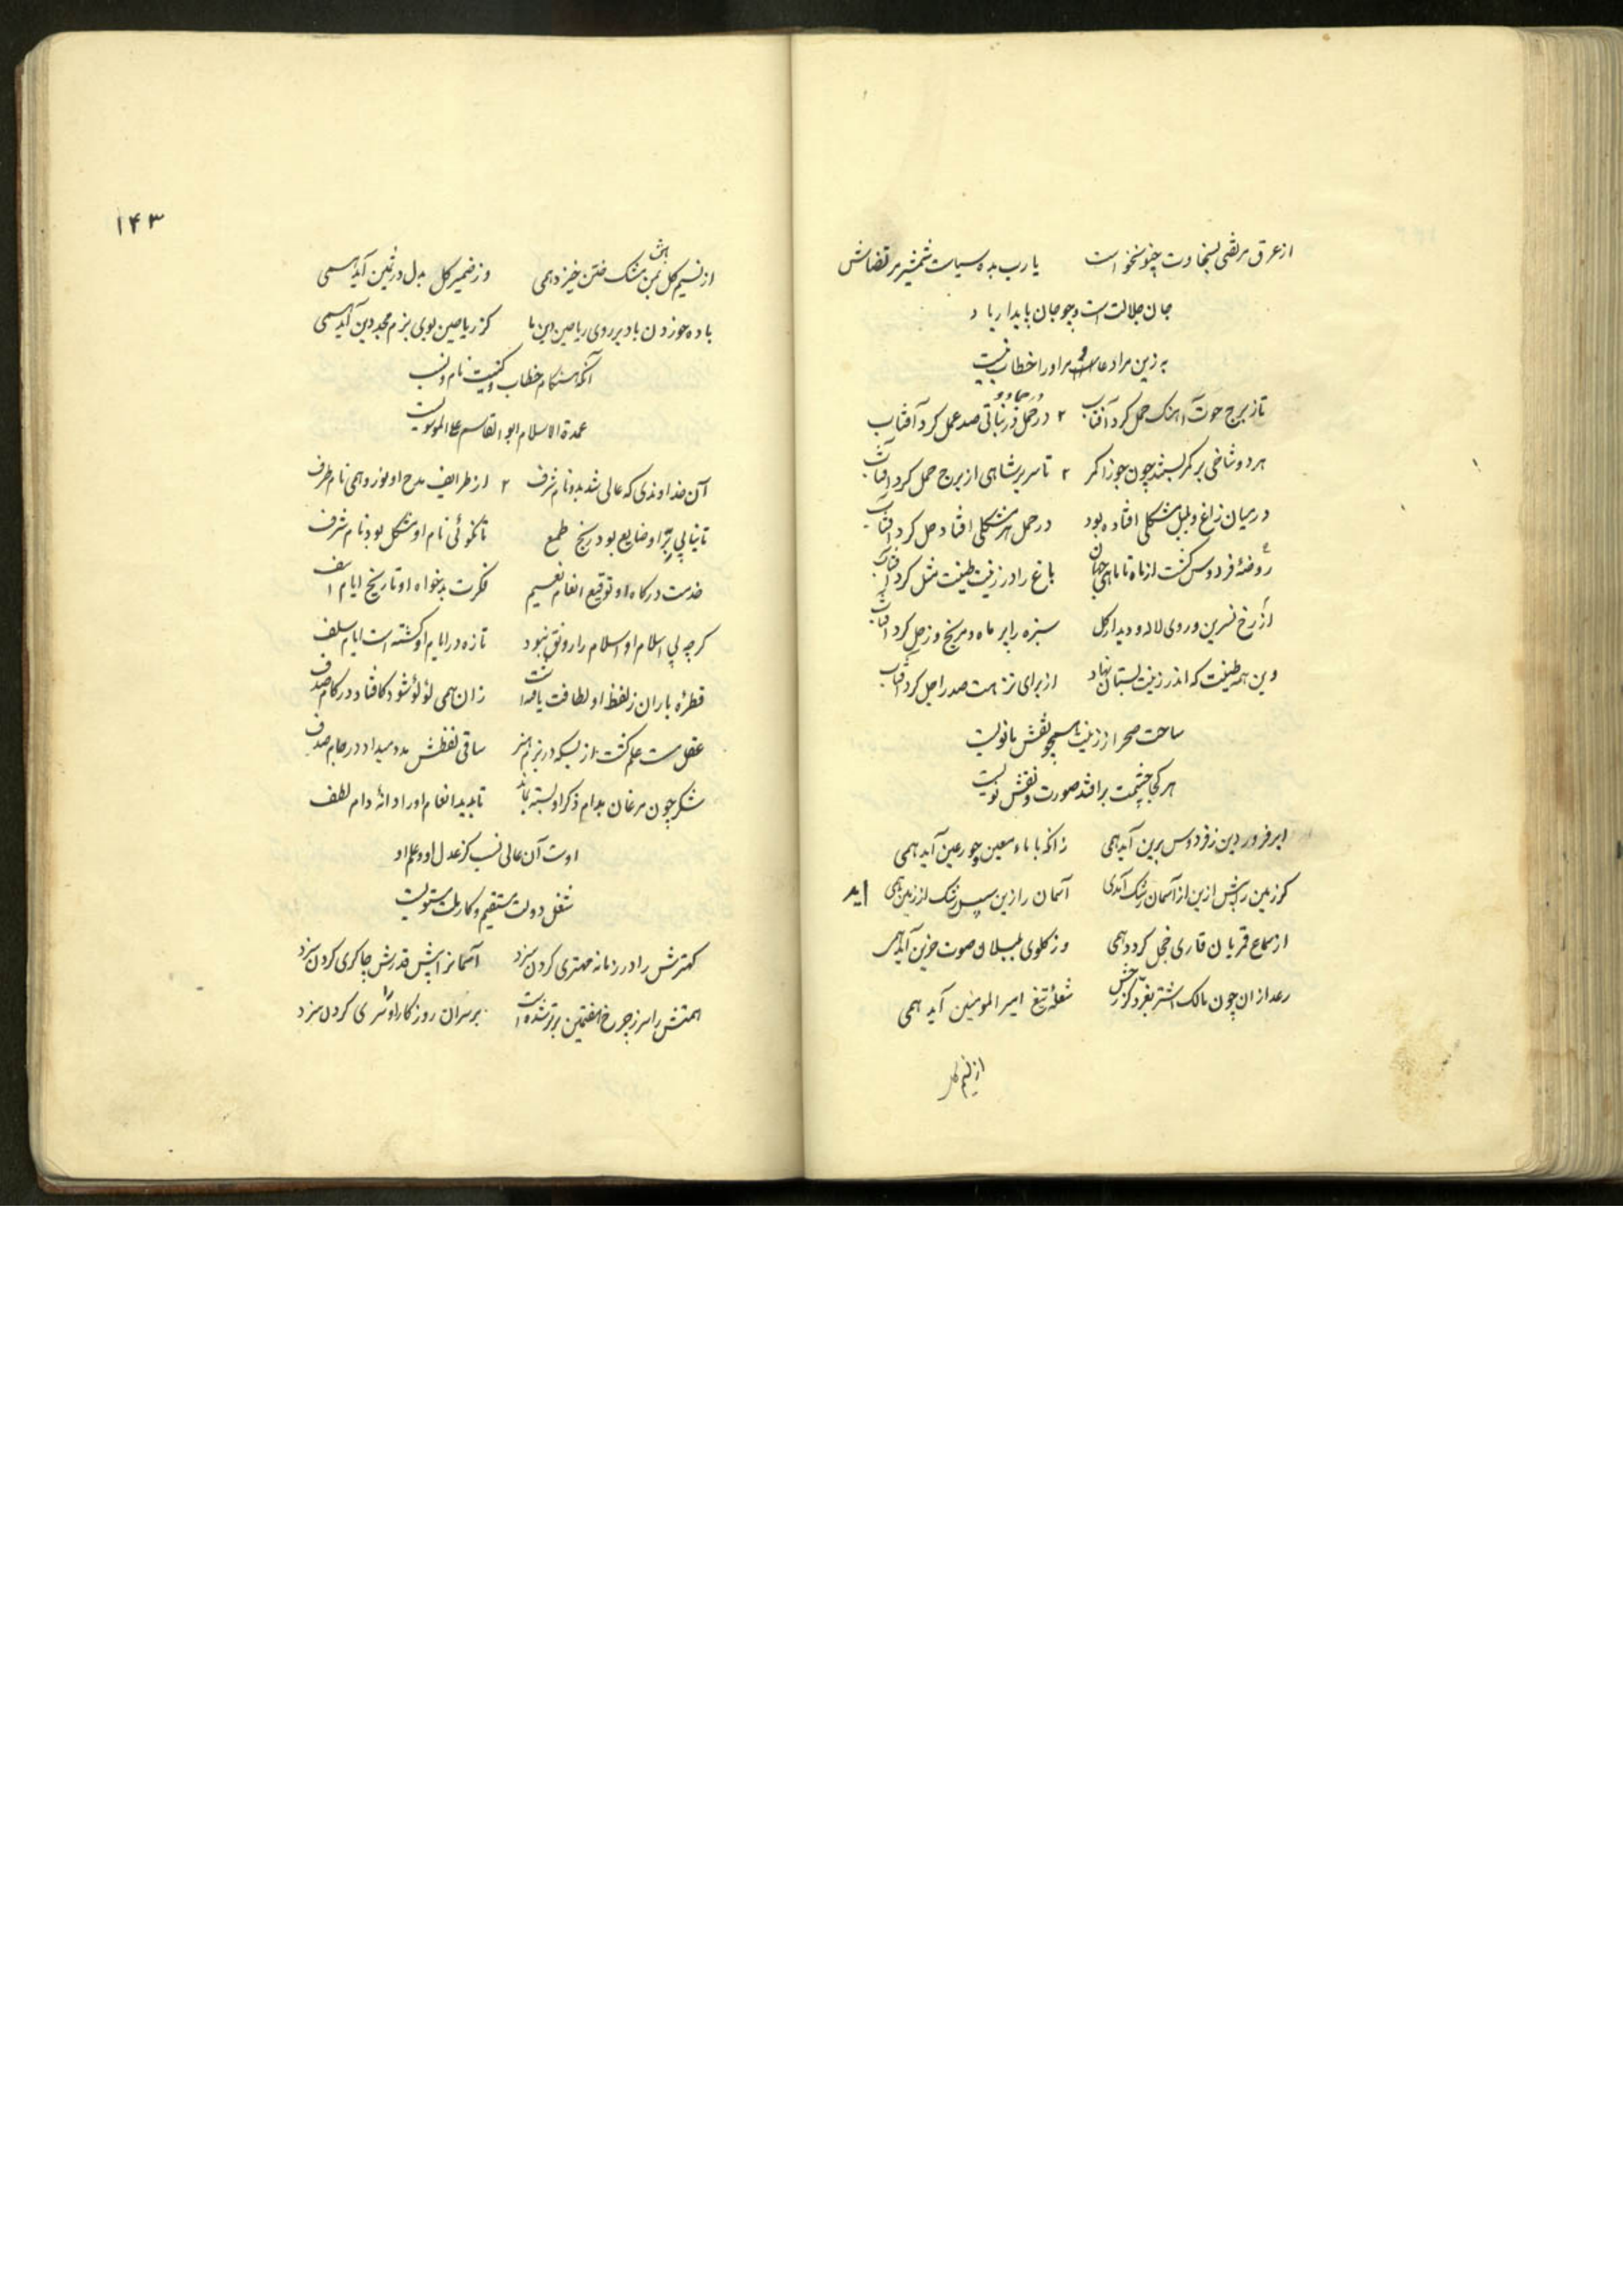 از عرق مرتضی بسخاوت چنو نخواست یا رب بده سیاست شمشیر مرتضاش
جان جلالت است و چو جان پایدار باد
به زین مراد عاست و مر او را خطاب نیست
تا ز برج حوت آهنگ حمل کرد آفتاب ۲ در حمل صد عمل کرد آفتاب
هر دو شاخی بر کمر بستند چون جوزا کمر ۲ تا سریر شاهی از برج حمل کرد آفتاب
در میان زاغ و بلبل مشکلی افتاده بود در حمل هر مشکلی افتاد حل کرد آفتاب
روضهٔ فردوس گشت از ماه تا ماهی جهان باغ را در زینت طینت مثل کرد آفتاب
از رخ نسرین و روی لاله و دیدار گل سبزه را پر ماه و مریخ و زحل کرد آفتاب
وین همه طینت که اندر زینت بستان نهاد از برای نزهت صدر اجل کرد آفتاب
ساحت صحرا ز زینت همچو نقش مانویست
هر کجا چشمت بر افتد صورت و نقش نویست
ابر فروردین ز فردوس برین آید همی زانکه با ماء معین چو رعین آید همی
گر زمین را پیش ازین از آسمان رشک آمدی آسمان را زین سپس رشک از زمین همی آید
از سماع قمریان قاری خجل گردد همی وز گلوی بلبلان صوت حزین آید همی
رعد از ان چون مالک اشتر بغرد کز رخش شعلهٔ تیغ امیر المومنین آید همی
از نسیم گل
۱۴۳
از نسیم گل بمن مشک ختن خیزد همی وز ضمیر گل بدل در ثمین آید همی
باده خوردن باد بر روی ریاحین این ما کز ریاحین بوی بزم مجد دین آید همی
آنکه هنگام خطاب و کنیت نام و نسب
عمدة الاسلام ابو القاسم علی الموسویست
آن خداوندی که عالی شد بدو نام شرف ۲ از طرایف مدح او نوزد همی نام طرف
تا نیابی بر او ضایع بود رنج طمع تا نگوئی نام او مشکل بود نام شرف
خدمت درگاه او توقیع انعام نعیم فکرت بدخواه او تاریخ ایام اسف
گر چه بی اسلام او اسلام را رونق نبود تازه در ایام او گشته است ایام سلف
قطرهٔ باران ز لفظ او لطافت یافته است زان همی لؤلؤ شود کافتاد در کام صدف
عقل مست علم گشت از بسکه در بزم هنر ساقی لفظش مدد میداد در جام صدف
شکر چون مرغان بدام ذکر او بسته بماند تا بدید انعام او را دانهٔ دام لطف
اوست آن عالی نسب کز عدل او و علم او
شغل دولت مستقیم و کار ملت مستویست
کهترش را در زمانه مهتری کردن سزد آسمانرا پیش قدرش چاکری کردن سزد
همتش را سر ز چرخ هفتمین برتر شده است بر سران روزگار او را سری کردن سزد